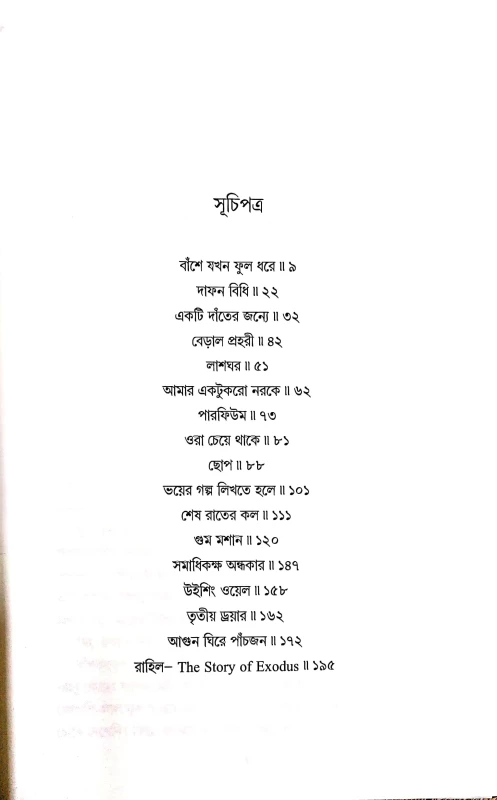 সূচিপত্র
বাঁশে যখন ফুল ধরে ॥ ৯
দাফন বিধি ॥ ২২
একটি দাঁতের জন্যে ॥ ৩২
বেড়াল প্রহরী ॥ ৪২
লাশঘর ॥ ৫১
আমার একটুকরো নরকে ॥ ৬২
পারফিউম ॥ ৭৩
ওরা চেয়ে থাকে ॥ ৮১
ছোপ ॥ ৮৮
ভয়ের গল্প লিখতে হলে ॥ ১০১
শেষ রাতের কল ॥ ১১১
গুম মশান ॥ ১২০
সমাধিকক্ষ অন্ধকার ॥ ১৪৭
উইশিং ওয়েল ॥ ১৫৮
তৃতীয় ড্রয়ার ॥ ১৬২
আগুন ঘিরে পাঁচজন ॥ ১৭২
রাহিল– The Story of Exodus ॥ ১৯৫